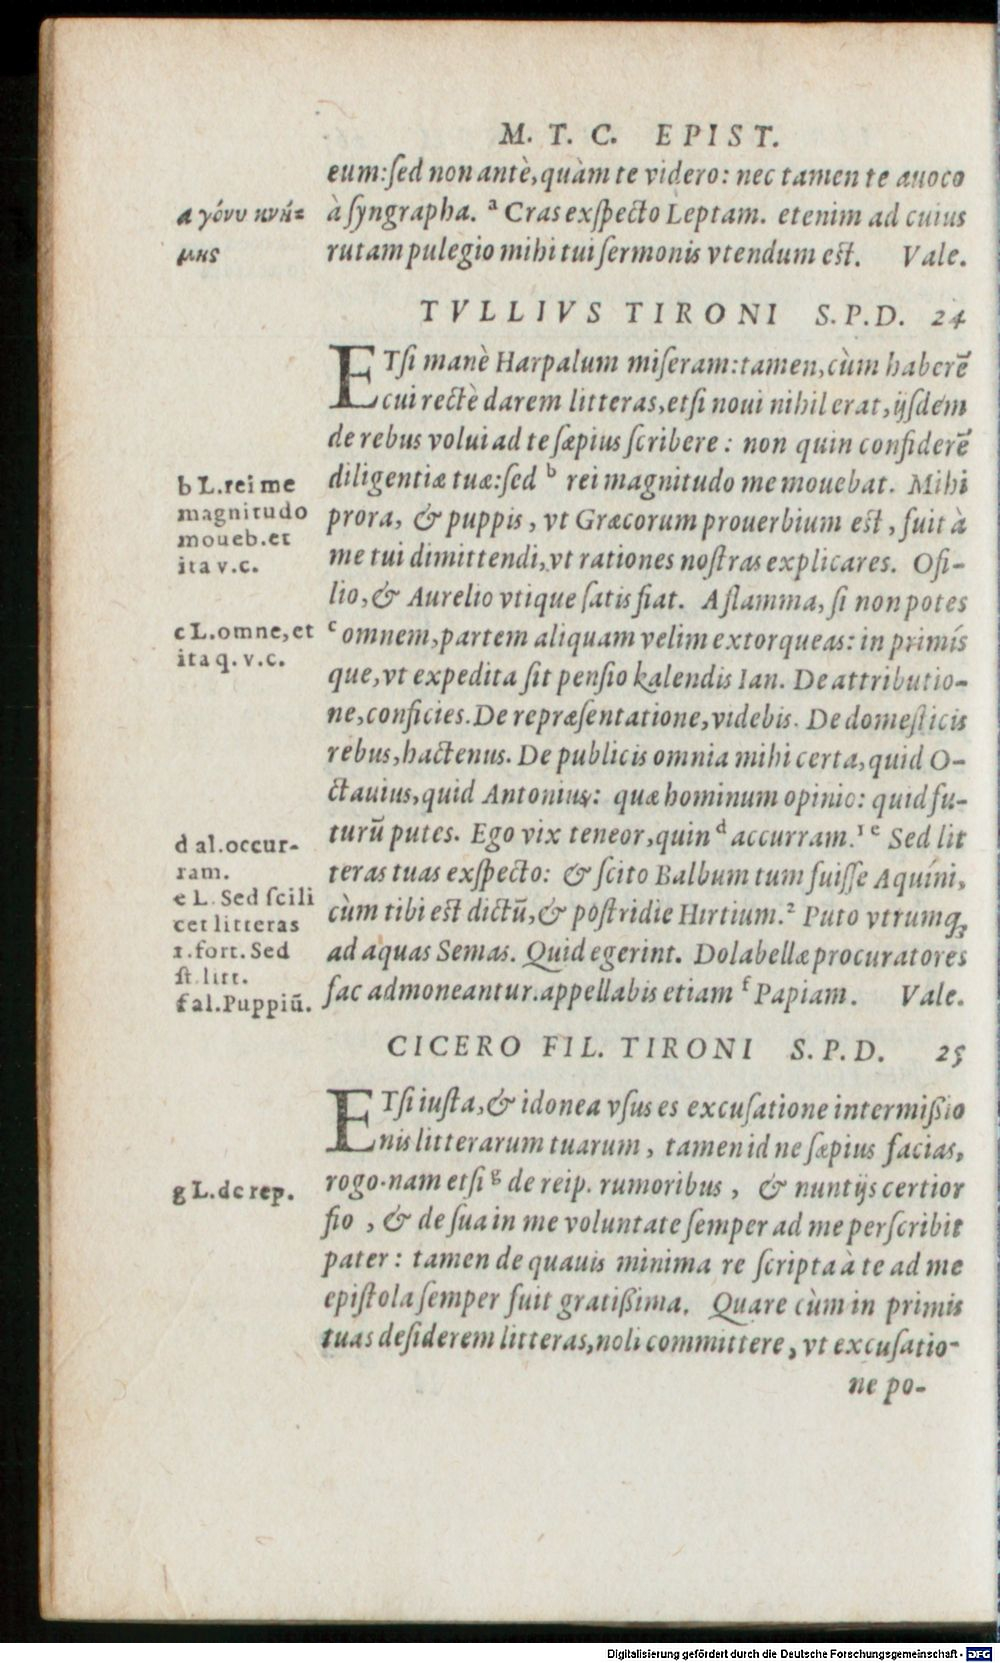 M. T. C. EPIST.
eum:ſed non antè, quàm te videro: nec tamen te auoco
à ſyngrapha. ª Cras exſpecto Leptam. etenim ad cuius
rutam pulegio mihi tui ſermonis vtendum est. Vale.
a γόνυ κνή-
μης
TVLLIVS TIRONI S. P. D. 24
ETſi manè Harpalum miſeram: tamen, cùm haberē
cui rectè darem litteras, etſi noui nihil erat, ijſdem
de rebus volui ad te ſæpius ſcribere: non quin confiderē
diligentiæ tuæ: ſed ᵇ rei magnitudo me mouebat. Mihi
prora, & puppis, vt Græcorum prouerbium est, fuit à
me tui dimittendi, vt rationes noſtras explicares. Ofi-
lio, & Aurelio vtique ſatis fiat. A flamma, ſi non potes
ᶜ omnem, partem aliquam velim extorqueas: in primís
que, vt expedita ſit penſio kalendis Ian. De attributio-
ne, conficies. De repræſentatione, videbis. De domeſticis
rebus, hactenus. De publicis omnia mihi certa, quid O-
ctauius, quid Antonius: quæ hominum opinio: quid fu-
turū putes. Ego vix teneor, quin ᵈ accurram.¹ ᵉ Sed lit
teras tuas exſpecto: & ſcito Balbum tum fuiſſe Aquíni,
cùm tibi est dictū, & poſtridie Hirtium.² Puto vtrumq;
ad aquas Semas. Quid egerint. Dolabellæ procuratores
fac admoneantur. appellabis etiam ᶠ Papiam. Vale.
b L. rei me
magnitudo
moueb. et
ita v. c.
c L. omne, et
ita q. v. c.
d al. occur-
ram.
e L. Sed ſcili
cet litteras
1. fort. Sed
ſt. litt.
f al. Puppiū.
CICERO FIL. TIRONI S. P. D. 25
ETſi iuſta, & idonea vſus es excuſatione intermißio
nis litterarum tuarum, tamen id ne ſæpius facias,
rogo. nam etſi ᵍ de reip. rumoribus, & nuntijs certior
fio, & de ſua in me voluntate ſemper ad me perſcribit
pater: tamen de quauis minima re ſcripta à te ad me
epiſtola ſemper fuit gratißima. Quare cùm in primis
tuas deſiderem litteras, noli committere, vt excuſatio-
g L. de rep.
ne po-
Digitalisierung gefördert durch die Deutsche Forschungsgemeinschaft - DFG